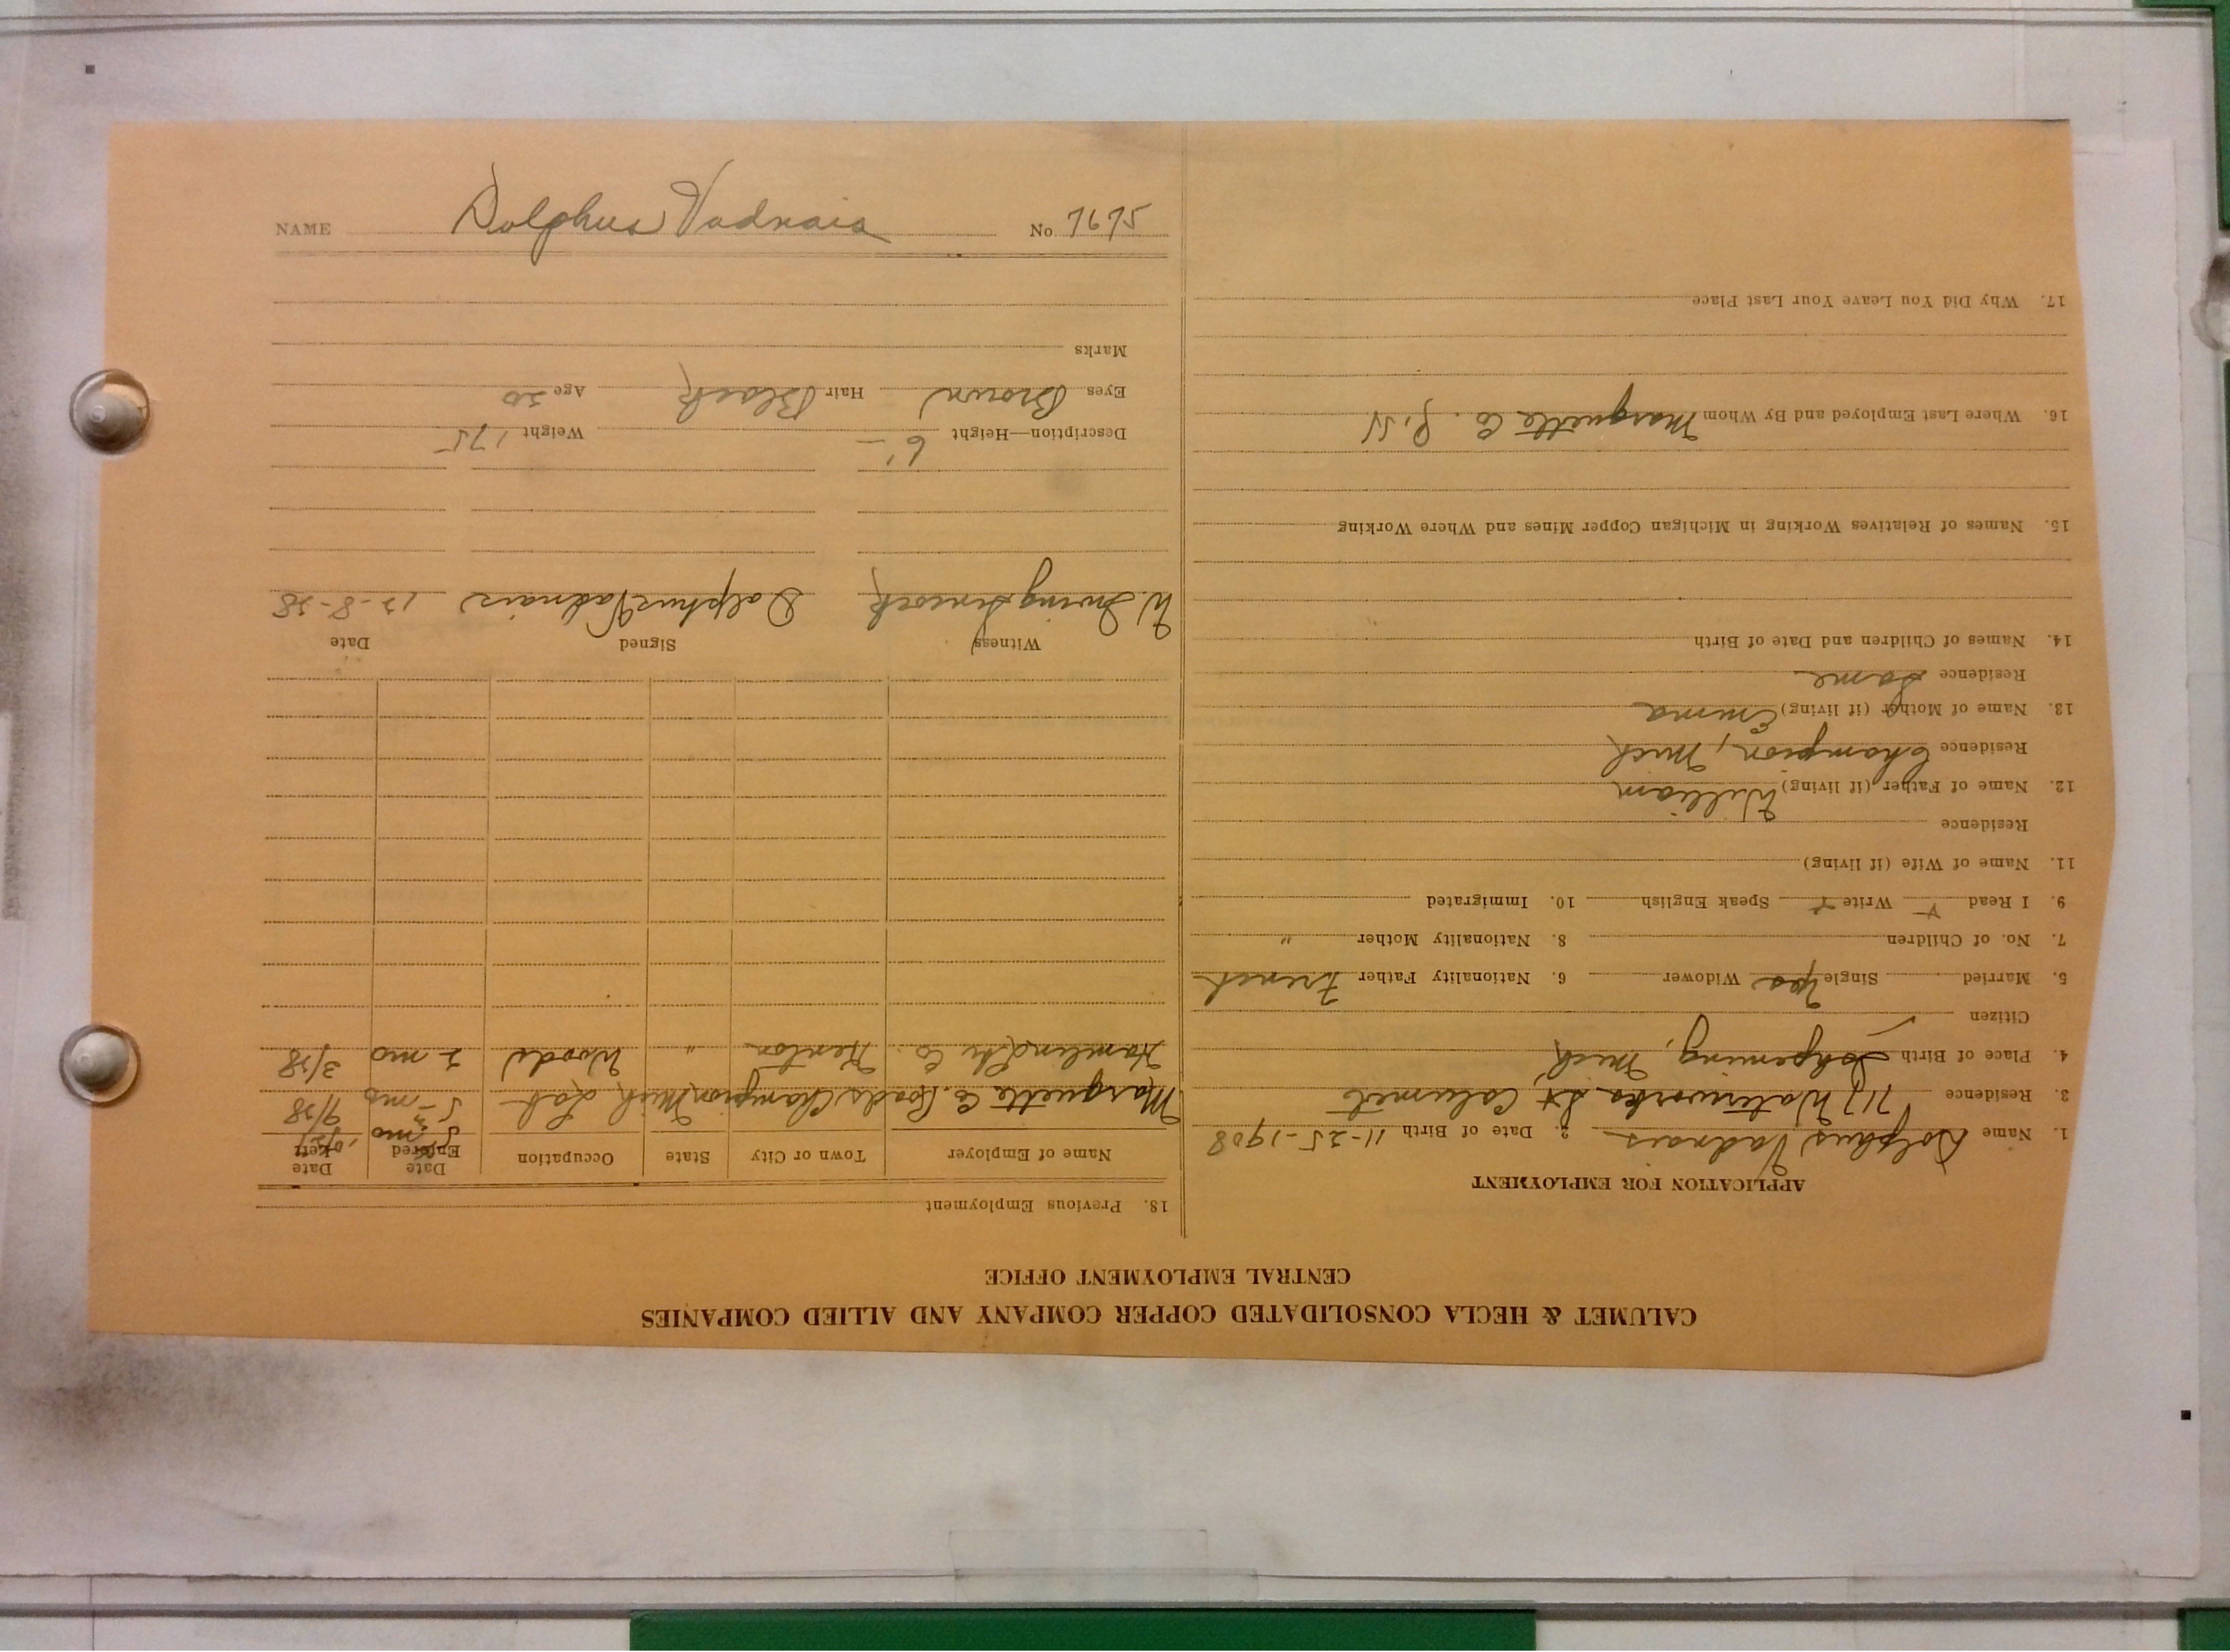 CALUMET & HECLA CONSOLIDATED COPPER COMPANY AND ALLIED COMPANIES
CENTRAL EMPLOYMENT OFFICE
APPLICATION FOR EMPLOYMENT
1. Name Dolphus Vadnais 2. Date of Birth 11-25-1908
3. Residence 717 Waterworks St Calumet
4. Place of Birth Ishpeming, Mich
Citizen ✓
5. Married Single Yes Widower 6. Nationality Father French
7. No. of Children 8. Nationality Mother "
9. I Read Write Speak English 10. Immigrated
11. Name of Wife (if living)
Residence
12. Name of Father (if living) William
Residence Champion, Mich
13. Name of Mother (if living) Emma
Residence Same
14. Names of Children and Date of Birth
15. Names of Relatives Working in Michigan Copper Mines and Where Working
16. Where Last Employed and By Whom Marquette Co.
17. Why Did You Leave Your Last Place
18. Previous Employment
Name of Employer Town or City State Occupation Date Entered Date Left
5 mo
Marquette Co. Roads Champion Mich Lab 5 mo 9/38
Hamlind Co. Kenton " Woods 2 mo 3/38
Witness Signed Date
W. Irving Dolphus Vadnais 12-8-38
Description—Height 6'— Weight 175
Eyes Brown Hair Black Age 30
Marks
NAME Dolphus Vadnais No 7675